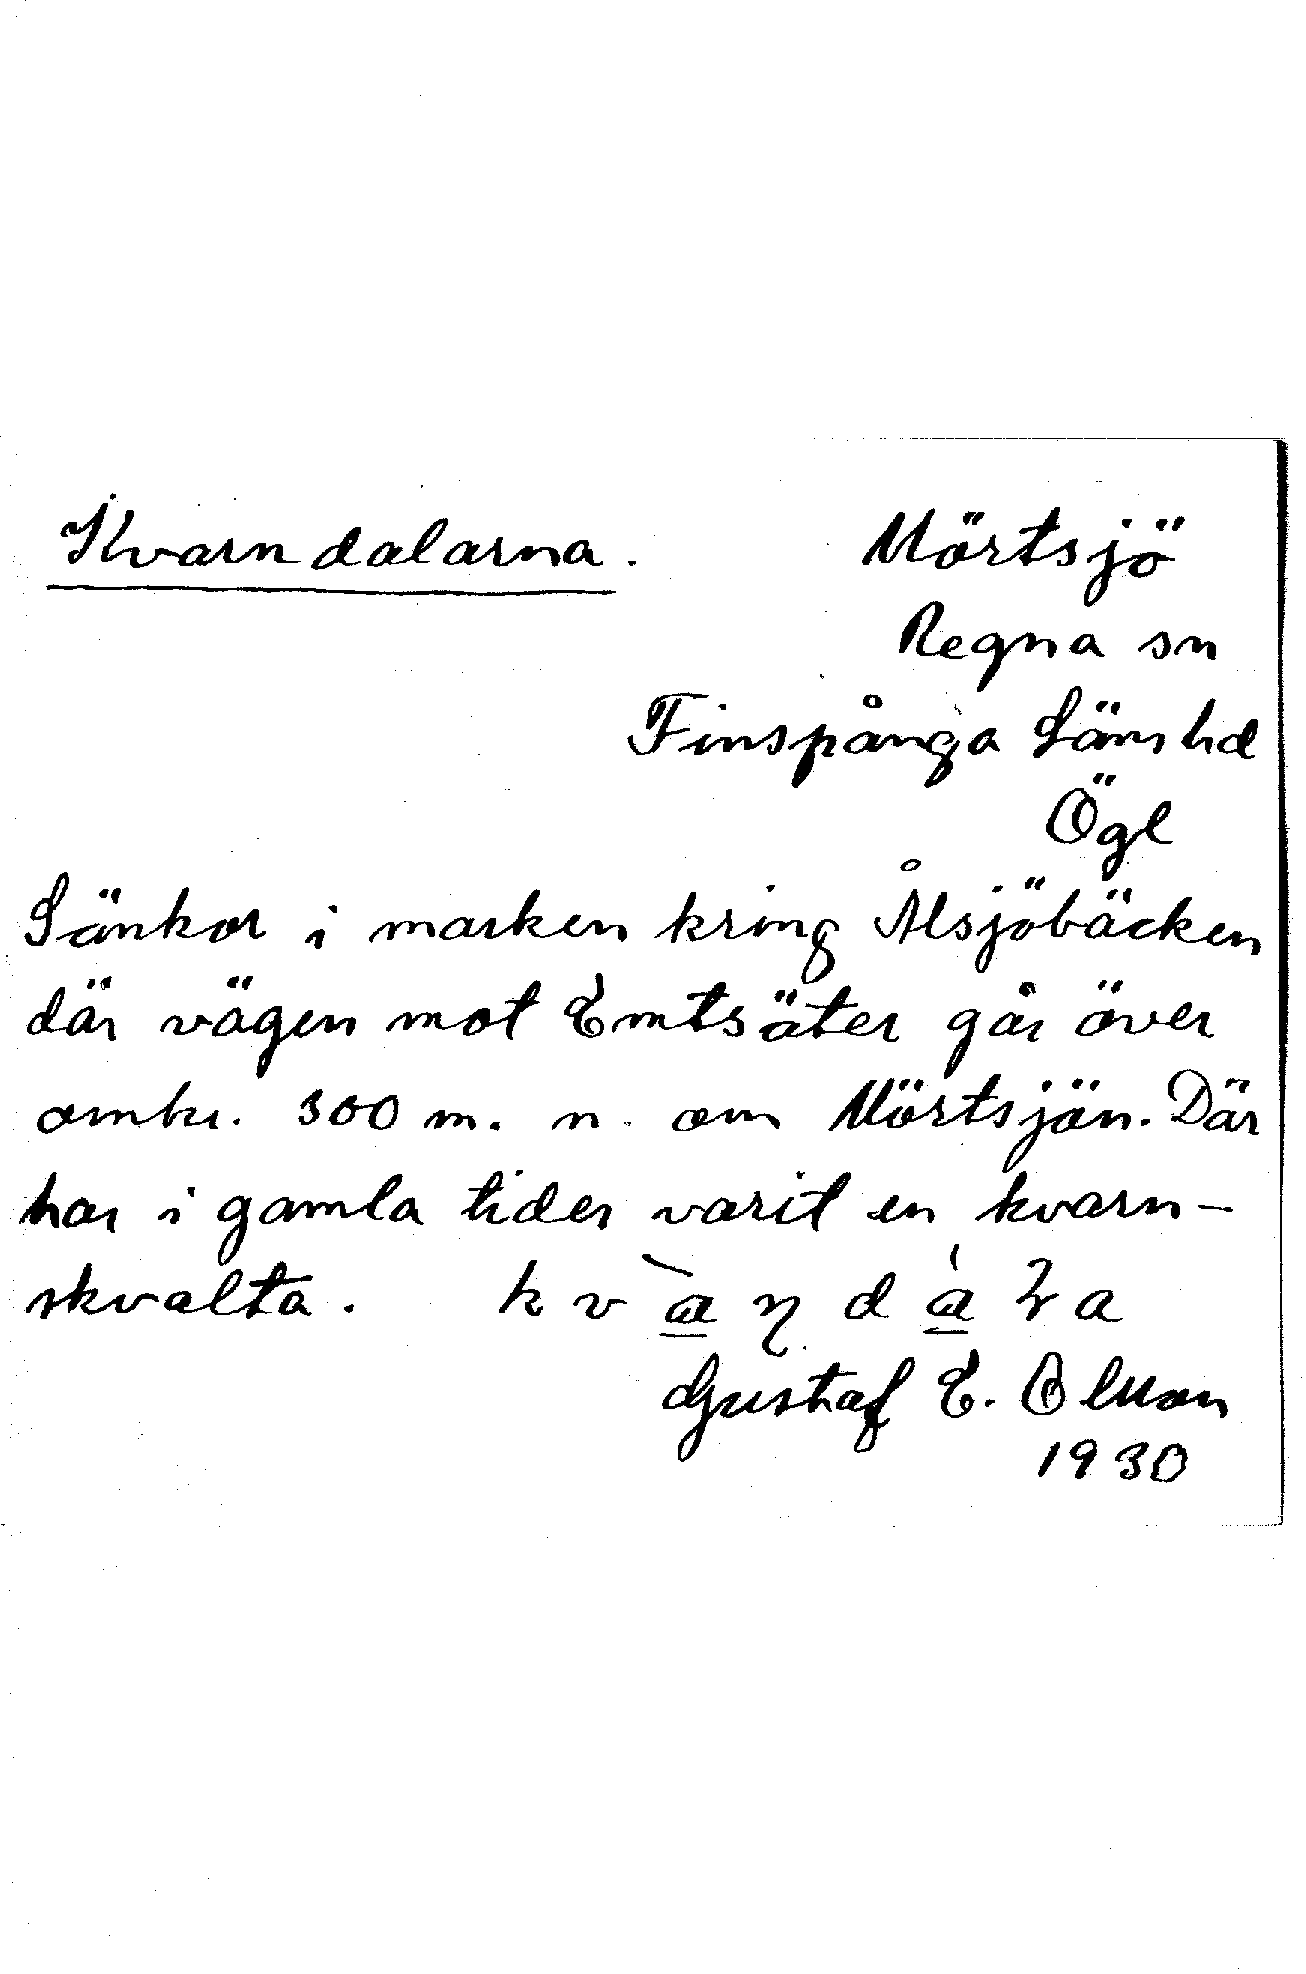 Kvarndalarna. Mörtsjö
Regna sn
Finspånga Länshd
Ögl
Sänkor i marken kring Ålsjöbäcken
där vägen mot Emtsäter går över
omkr. 300 m. n. om Mörtsjön. Där
har i gamla tider varit en kvarn-
skvalta. kv
Gustaf E. Olsson
1930